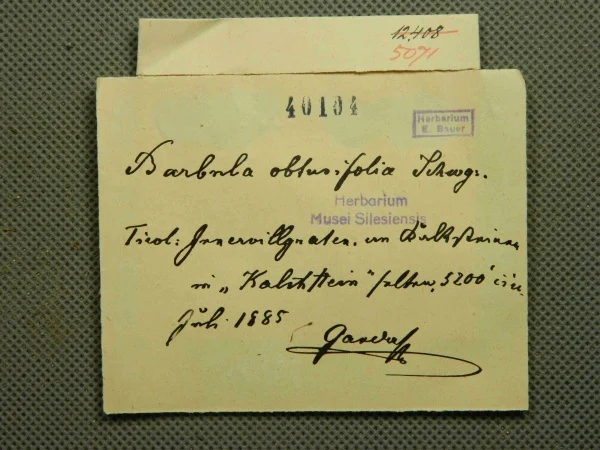 12,408
5071
40104
Herbarium
E. Bauer
Barbula obtusifolia Schwgr.
Herbarium
Musei Silesiensis
Tirol: Innervillgraten. an
in „Kalkstein" 5200'
Juli 1885
Gander